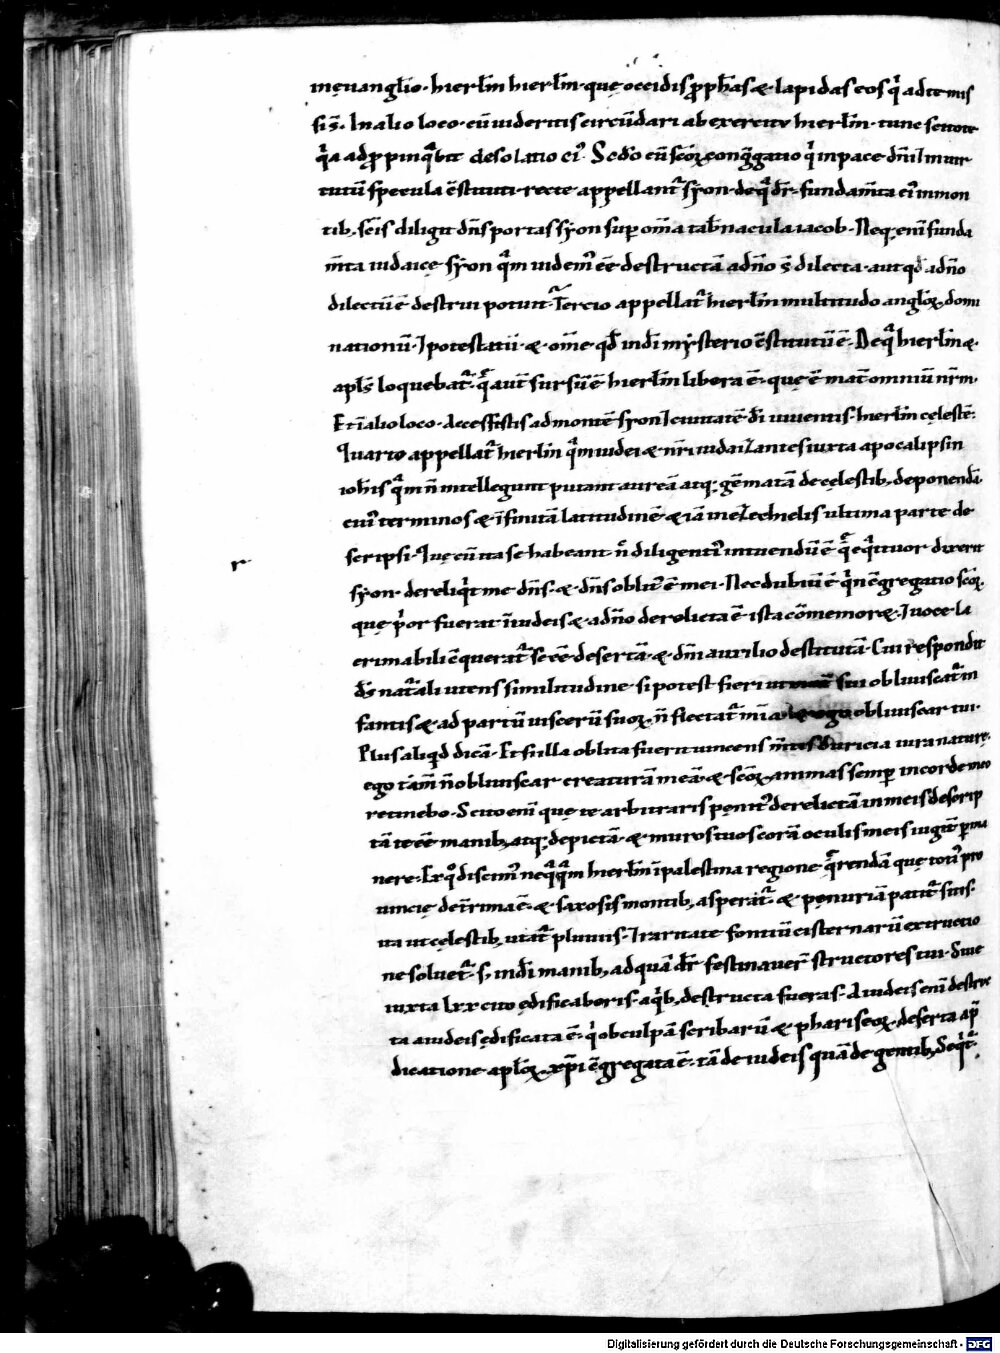 in euanglio· hierłm hierłm· quę occidis ꝓphas & lapidas eos q̍ ad te mis
si s̄· In alio loco· cū uideritis circūdari ab exercitu hierłm· tunc scitote
q̍a adꝓpinq̍bit desolatio ei᷒· Scdo cū scōꝝ cong̍gatio q̍ in pace dn̄i & in uir
tutū specula c̄stituti recte appellant᷒ syon· de q̍ dr̄· fundam̄ta ei᷒ in mon
tib; scīs diligit dn̄s portas syon sup om̄a tabnacula iacob· Neq; eni funda
m̄ta iudaicę syon q̍m uidem᷒ eē destructā a dn̄o s̄ dilecta· aut qd a dn̄o
dilectū ē destrui potuit· Tercio appellat᷒ hierłm multitudo angloꝝ, domi
nationū· & potestatū· & om̄e qd in dī mysterio c̄stitutū ē· De q̍ hierłm &
apls loquebat᷒· q̄ aut̄ sursū ē hierłm libera ē· quę ē mat̄ omniū nr̄m·
Et ī alio loco· Accessistis ad montē syon & ciuitatē dī uiuentis· hierłm cęlestē·
Quarto appellat᷒ hierłm q̍m iudei & nr̄i iudaizantes iuxta apocalipsin
iohis q̍m n̄ intellegunt putant aureā atq; gēmatā de cęlestib; deponendā
cui᷒ terminos & īfinitā latitudinē· & iā in ezechielis ultima parte de
scripsi· Quę cū ita se habeant· n̄ diligenti᷒ intuendū ē q̄ & q̍tuor· dixerit
syon· dereliq̍t me dn̄s· & dn̄s oblit᷒ ē mei· Nec dubiū ē q̍n c̄gregatio scōꝝ
quę p̍or fuerat ī iudeis & a dn̄o derelicta ē· ista cōmemor&· & uoce la
crimabili c̄querat᷒ se eē desertā· & dn̄i auxilio destitutā· Cui respondit
ds̄ nat᷒ali utens similitudine· si potest fieri ut mat̄ sui obliuiscat᷒ in
fantis & ad partū uiscerū suoꝝ n̄ flectat᷒ m̄ia & ego obliuiscar tui·
Plus aliqd dicā· Et si illa oblita fuerit uincens m̄tis duricia iura naturę·
ego tām n̄ obliuiscar creaturā meā· & scōꝝ animas semp in corde meo
retinebo· Scito eni quę te arbitraris pęnit᷒ derelictā in meis descrip
tā te eē manib; atq; depictā· & muros tuos corā oculis meis iugit̄ pma
nere· Ex q̊ discim᷒ neq̍q̍m hierłm ī palestina regione q̄rendā quę toti᷒ pro
uincię det̄rima ē· & saxosis montib; asperat᷒· & pęnuriā patit᷒ sitis·
ita ut cęlestib; utat᷒ pluuiis· & raritate fontiū cisternarū extructio
ne soluet᷒· s; in dī manib; ad quā dr̄ festinauer̄ structores tui· Siue
iuxta lxx cito ędificaberis· a q̍b; destructa fueras· A iudeis eni destruc
ta a iudeis ędificata ē· q̍ ob culpā scribarū & phariseoꝝ, deserta· a p̄
dicatione aploꝝ xp̄i c̄gregata ē· tā de iudeis quā de gentib; Seqt᷒·
r
Digitalisierung gefördert durch die Deutsche Forschungsgemeinschaft - DFG